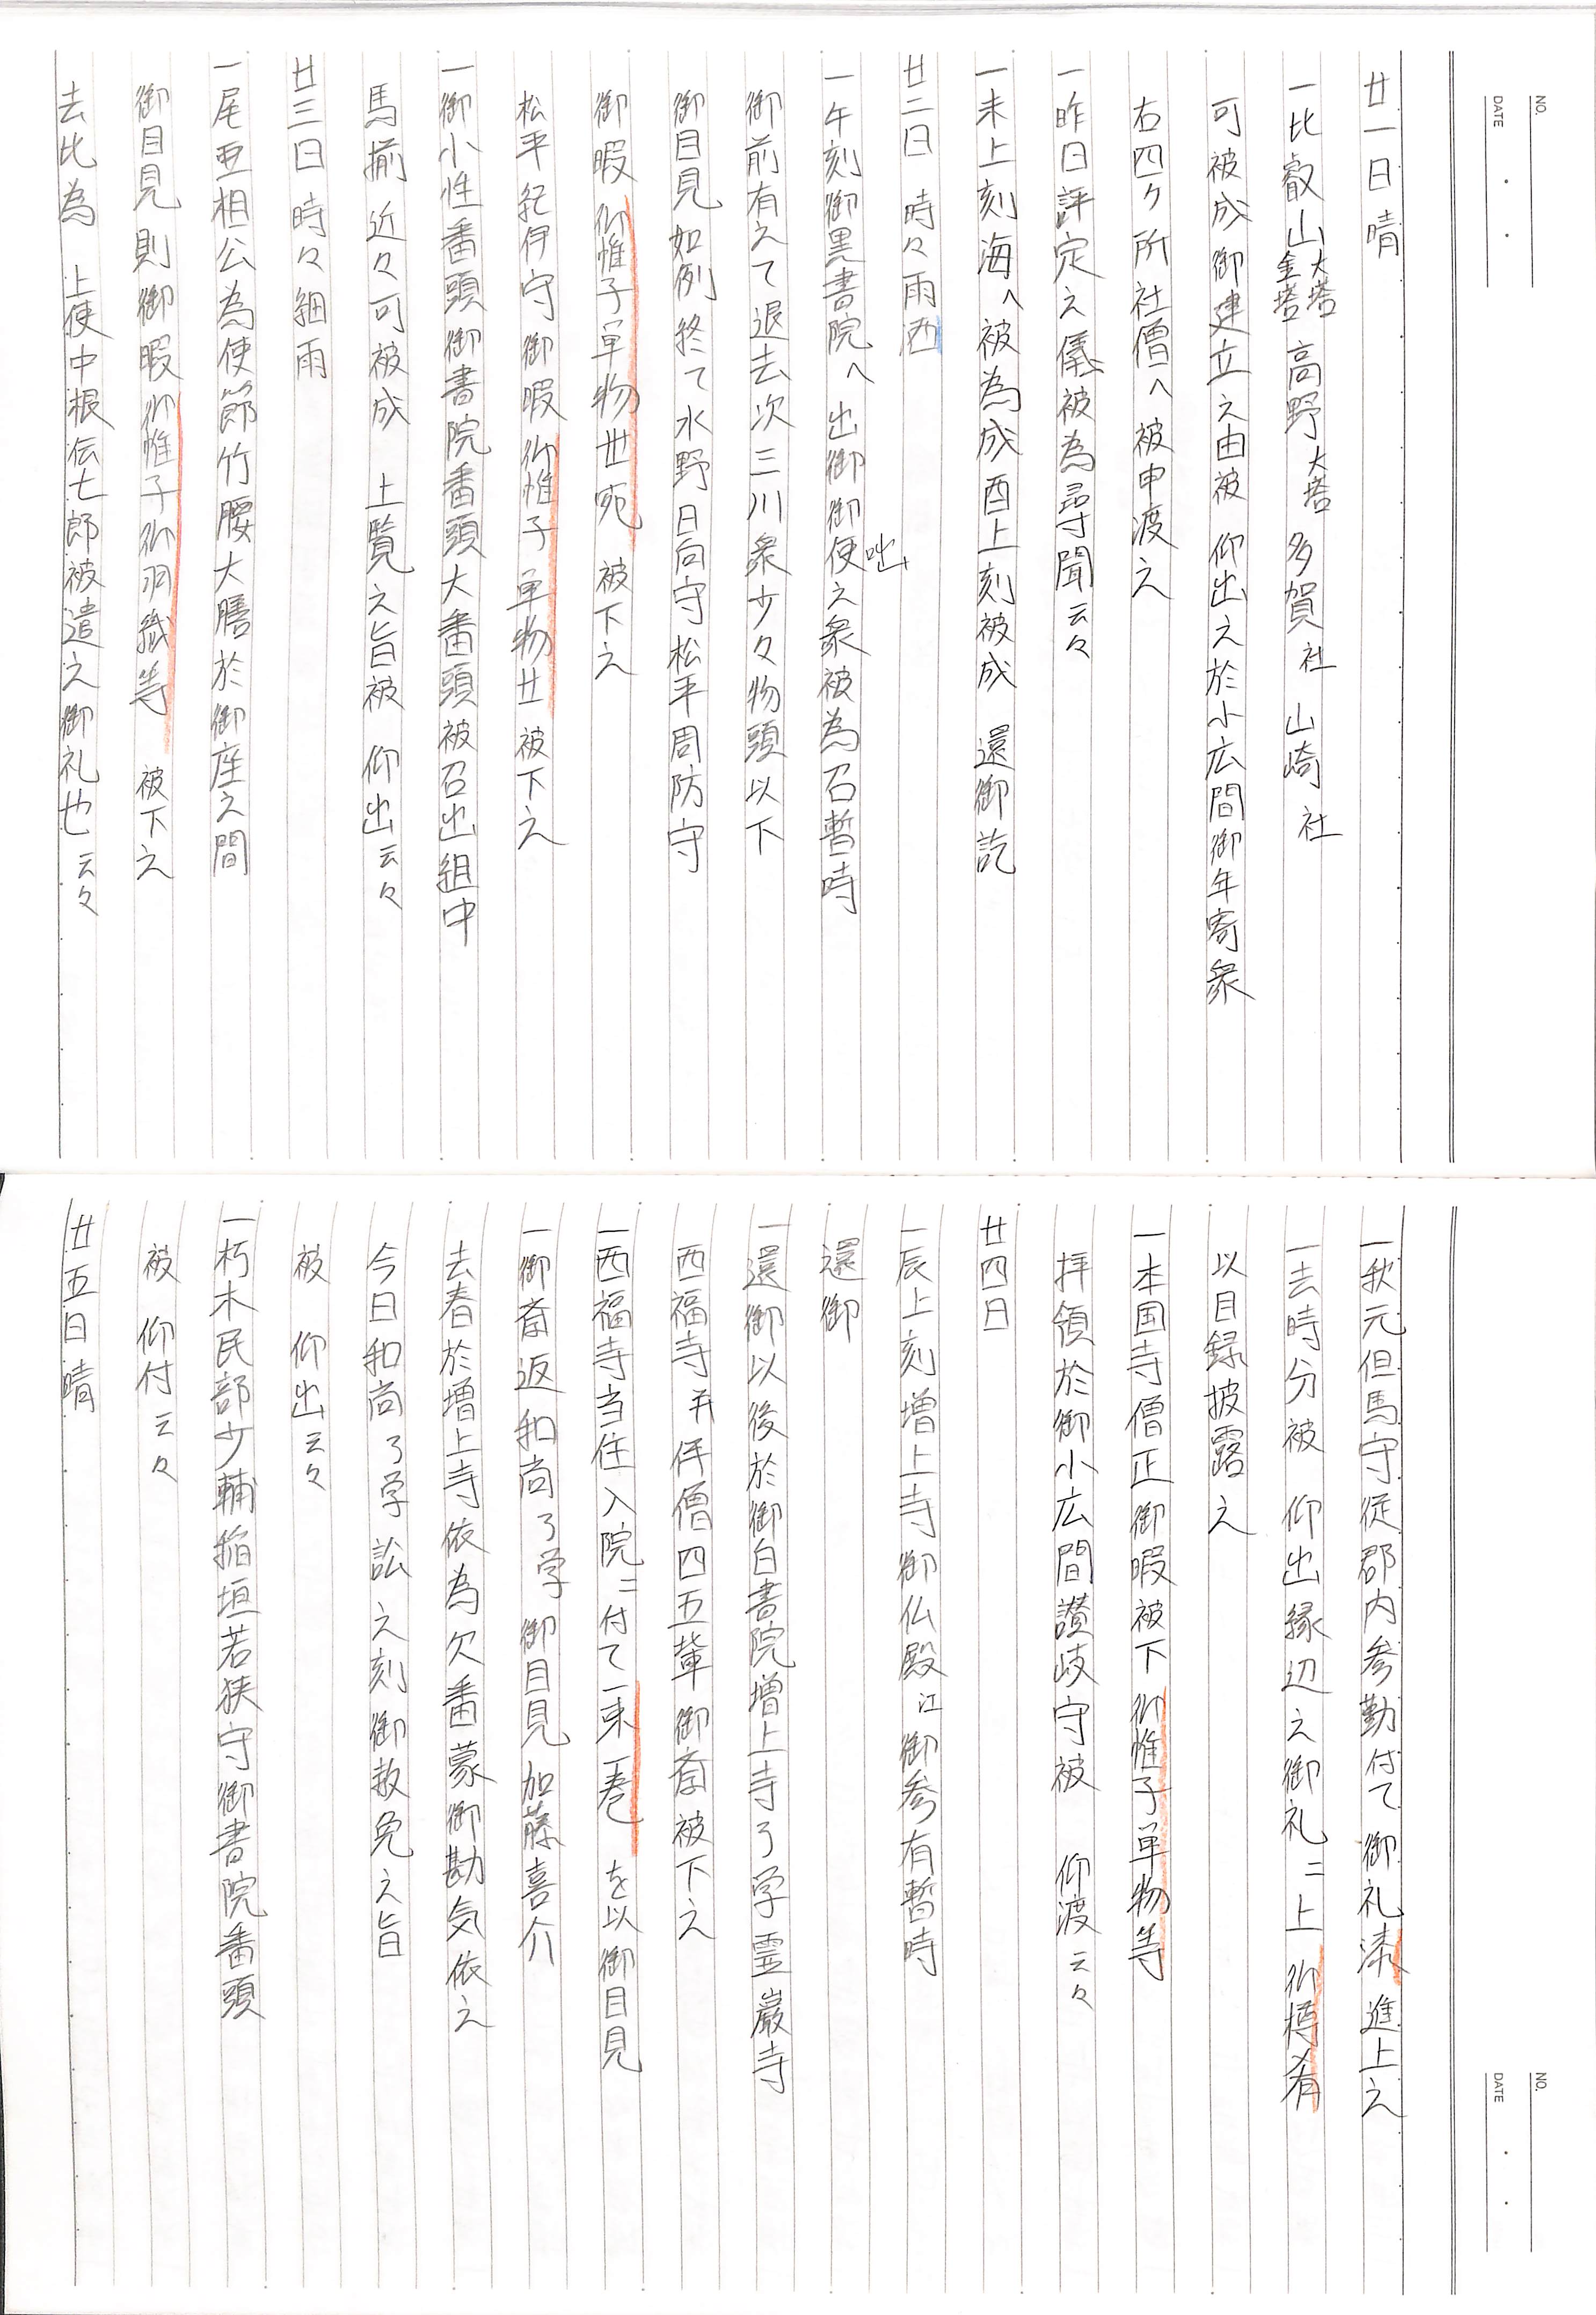 NO.
DATE
廿一日晴
一比叡山大塔金塔高野大塔多賀社山崎社
可被成御建立之由被 仰出之於小広間御年寄衆
右四ケ所社僧へ被申渡之
一昨日評定之儀被為尋聞云々
一未上刻海へ被為成酉上刻被成 還御訖
廿二日 時々雨洒
一午刻御黒書院へ 出御御使之衆被為召暫時
咄
御前有之て退去次三川衆少々物頭以下
御目見如例終て水野日向守松平周防守
御暇 帷子単物廿宛 被下之
松平紀伊守御暇 帷子単物廿 被下之
一御小性番頭御書院番頭大番頭被召出組中
馬揃近々可被成 上覧之旨被 仰出云々
廿三日 時々細雨
一尾亜相公為使節竹腰大膳於御座之間
御目見則御暇 帷子 羽織等 被下之
去比為 上使中根伝七郎被遣之御礼也云々
NO.
DATE
一秋元但馬守従郡内参勤付て御礼漆進上之
一去時分被 仰出縁辺之御礼ニ上 樽肴
以目録披露之
一本国寺僧正御暇被下 帷子単物等
拝領於御小広間讃岐守被 仰渡云々
廿四日
一辰上刻増上寺御仏殿江御参有暫時
還御
一還御以後於御白書院増上寺了学霊巌寺
西福寺并伴僧四五輩御斎被下之
一西福寺当住入院ニ付て一束一巻を以御目見
一御斎返和尚了学御目見加藤喜介
去春於増上寺依為欠番蒙御勘気依之
今日和尚了学訟之刻御赦免之旨
被 仰出云々
一朽木民部少輔稲垣若狭守御書院番頭
被 仰付云々
廿五日晴